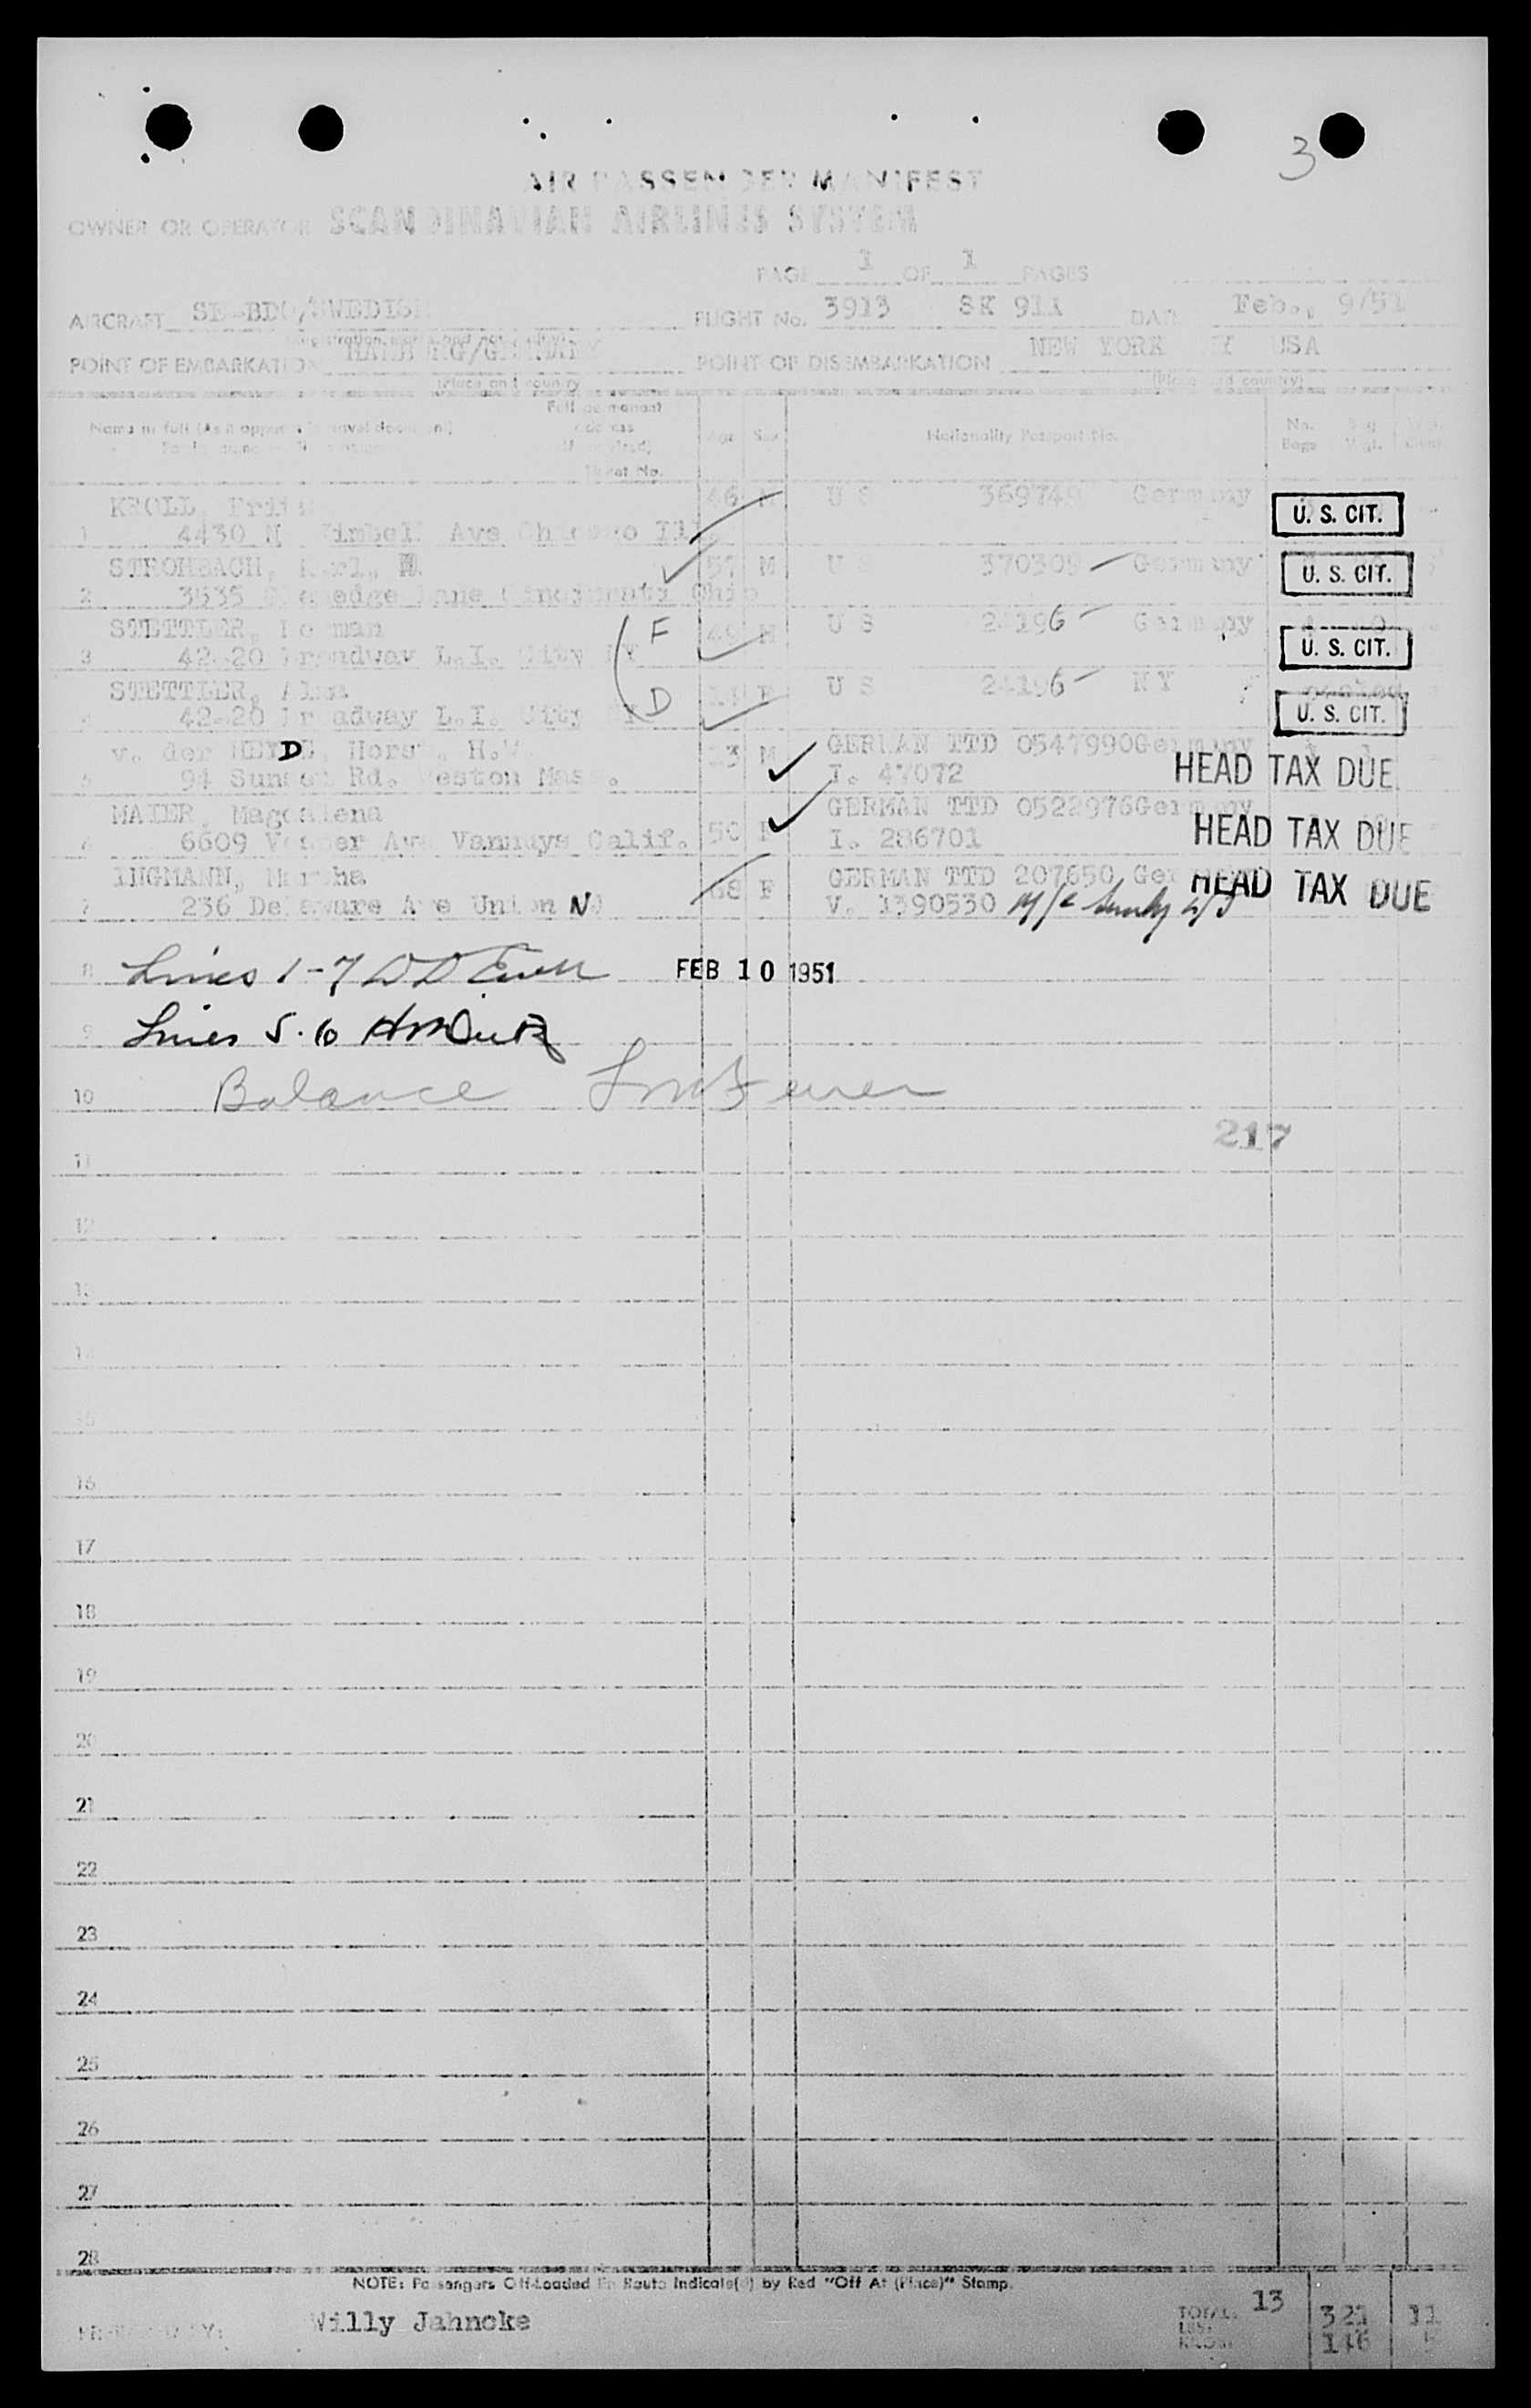 3
AIR PASSENGER MANIFEST
OWNER OR OPERATOR SCANDINAVIAN AIRLINES SYSTEM
PAGE 1 OF 1 PAGES
AIRCRAFT SE-BDO/SWEDISH FLIGHT No. 3913 SK 911 DATE Feb., 9/51
POINT OF EMBARKATION HAMBURG/GERMANY POINT OF DISEMBARKATION NEW YORK NY USA
(Place and country) (Place and country)
Full permanent
Name in full (As it appears travel document) address Age Sex Nationality Passport No. No. Bags
Ticket No.
KROLL, 46 M U S 36974 Germany
1 4430 N Kimball Ave Chicago Ill U. S. CIT.
STROHBACH, Karl, 57 M U S 370309 Germany
2 3535 Lane Cincinnati Ohio U. S. CIT.
STETTLER, Herman F 49 M U S 24196 Germany
3 42-20 Broadway L.I. City NY U. S. CIT.
STETTLER, D 14 F U S 24196 N Y
4 42-20 Broadway L.I. City NY U. S. CIT.
v. der HEYDE, Horst, H.W. M GERMAN TTD 0547990 Germany
5 94 Sunset Rd. Weston Mass. I. 47072 HEAD TAX DUE
MAIER, Magdalena 50 F GERMAN TTD 0522976 Germany
6 6609 Vesper Ave Vannuys Calif. I. 286701 HEAD TAX DUE
INGMANN, Martha 68 F GERMAN TTD 207650 HEAD TAX DUE
7 236 Delaware Ave Union NJ V. 1390530
8 Lines 1-7 FEB 10 1951
9 Lines 5.6
10 Balance
217
11
12
13
14
15
16
17
18
19
20
21
22
23
24
25
26
27
28
NOTE: Passengers Off-Loaded En Route Indicate(d) by Red "Off At (Place)" Stamp.
PREPARED BY: Willy Jahncke TOTAL: 13 321 11
LBS.
KILOS 146 5